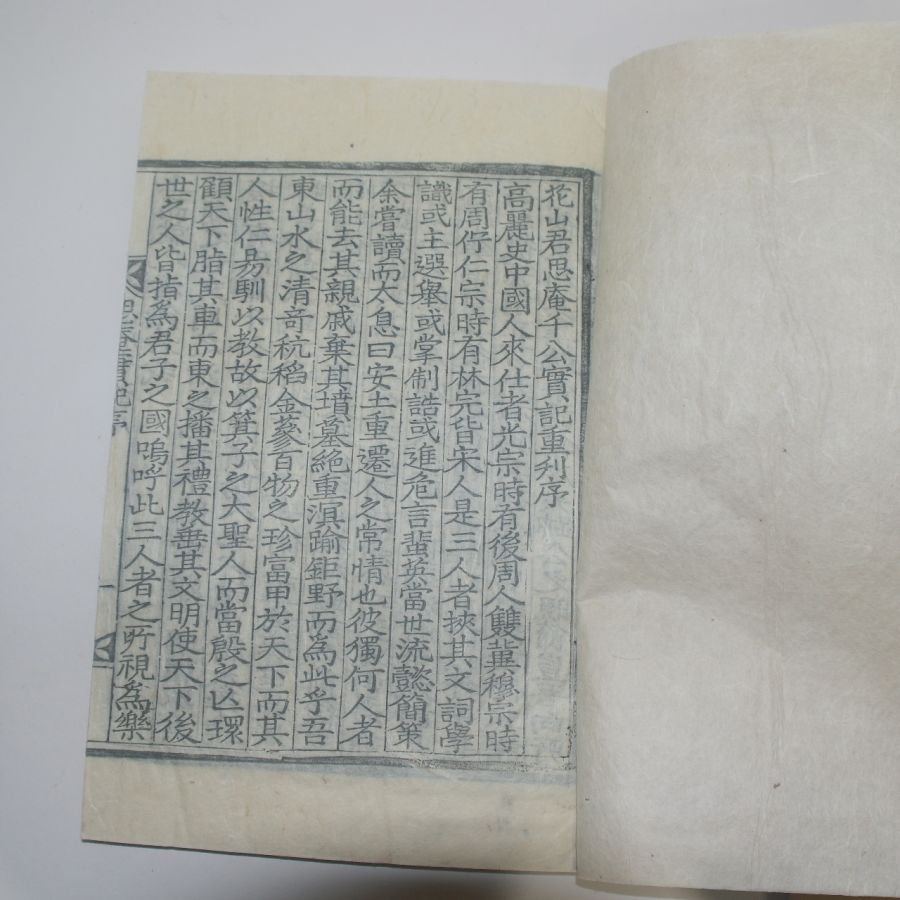 花山君思庵千公實記重刊序
高麗史中國人來仕者光宗時有後周人雙冀穆宗時
有周佇仁宗時有林完皆宋人是三人者挾其文詞學
識或主選舉或掌制誥或進危言蜚英當世流懿簡策
余嘗讀而太息曰安土重遷人之常情也彼獨何人者
而能去其親戚棄其墳墓絶重溟踰鉅野而為此乎吾
東山水之清竒秔稻金蔘百物之珍富甲於天下而其
人性仁昜馴以教故以箕子之大聖人而當殷之亾環
顧天下脂其車而東之播其禮教垂其文明使天下後
世之人皆指為君子之國嗚呼此三人者之所視為樂
思庵實記序
一